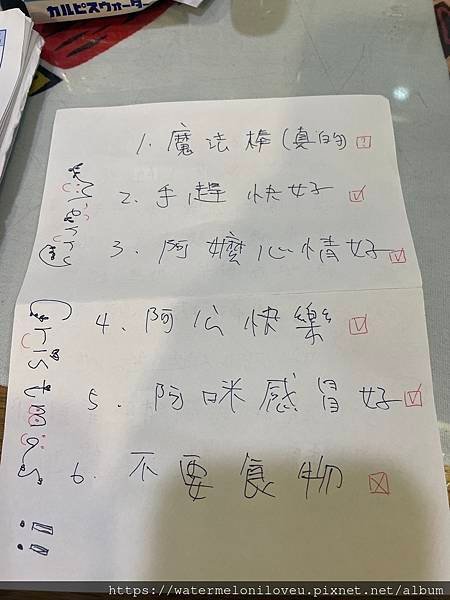 カルピスウォーター
1. 魔法棒(真的)
2. 手趕快好
3. 阿嬤心情好
4. 阿公快樂
5. 阿咪感冒好
6. 不要食物
Marry
Cristmas !!
https://watermeloniloveu.pixnet.net/album